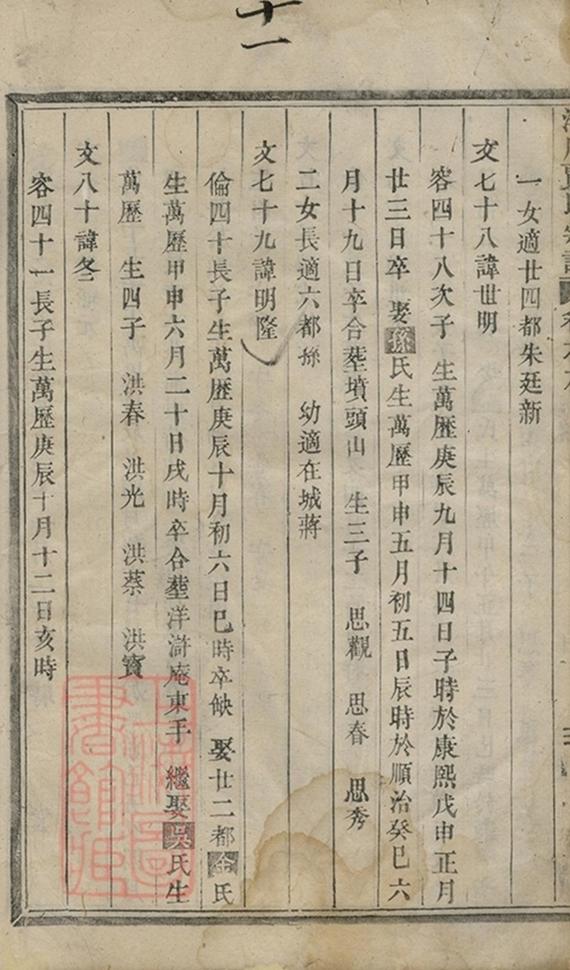 十一
一女適廿四都朱廷新
文七十八諱世明
容四十八次子 生萬歷庚辰九月十四日子時於康熙戊申正月
廿三日卒 娶孫氏生萬歷甲申五月初五日辰時於順治癸巳六
月十九日卒合塟墳頭山 生三子 思觀 思春 思秀
二女長適六都孫 幼適在城蔣
文七十九諱明隆
倫四十長子生萬歷庚辰十月初六日巳時卒缺 娶廿二都金氏
生萬歷甲申六月二十日戌時卒合塟洋滸庵東手 繼娶吳氏生
萬歷 生四子 洪春 洪光 洪蔡 洪寳
文八十諱冬二
容四十一長子生萬歷庚辰十月十二日亥時